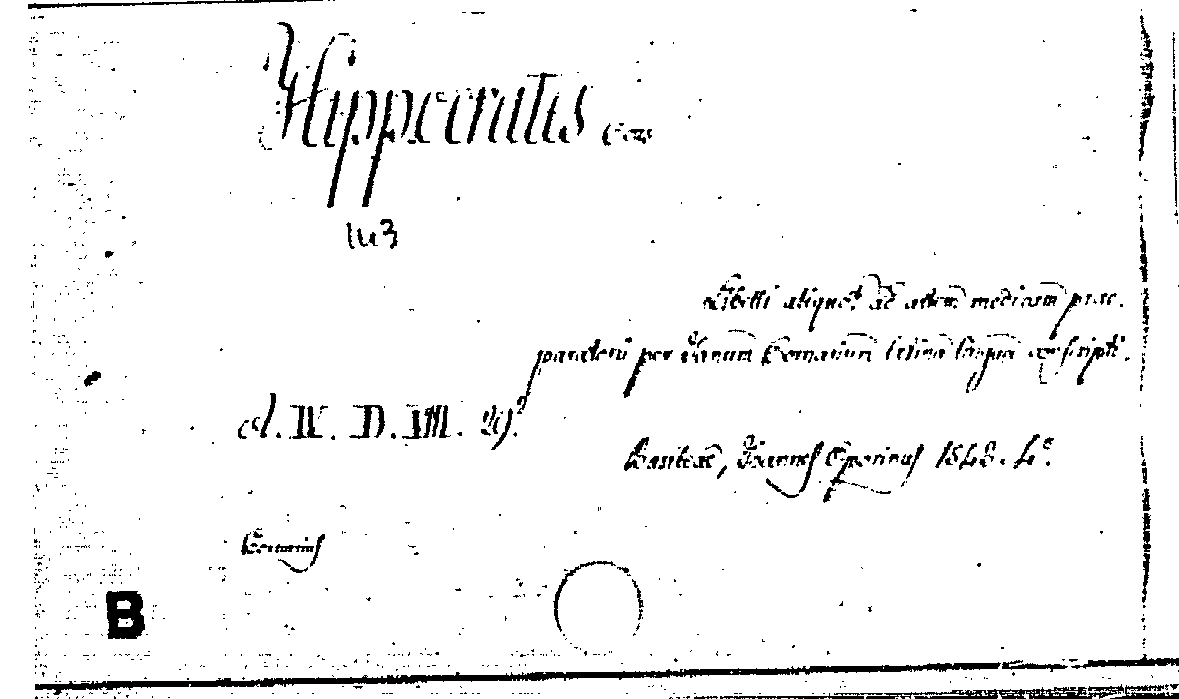 Hippocrates Cous
143
Libelli aliquot ad artem medicam prae-
paratorii per Janum Cornarium latina lingua conscripti.
A. IV. D. III. 29.
Basileae, Joannes Oporinus 1543. 4°.
Cornarius
B